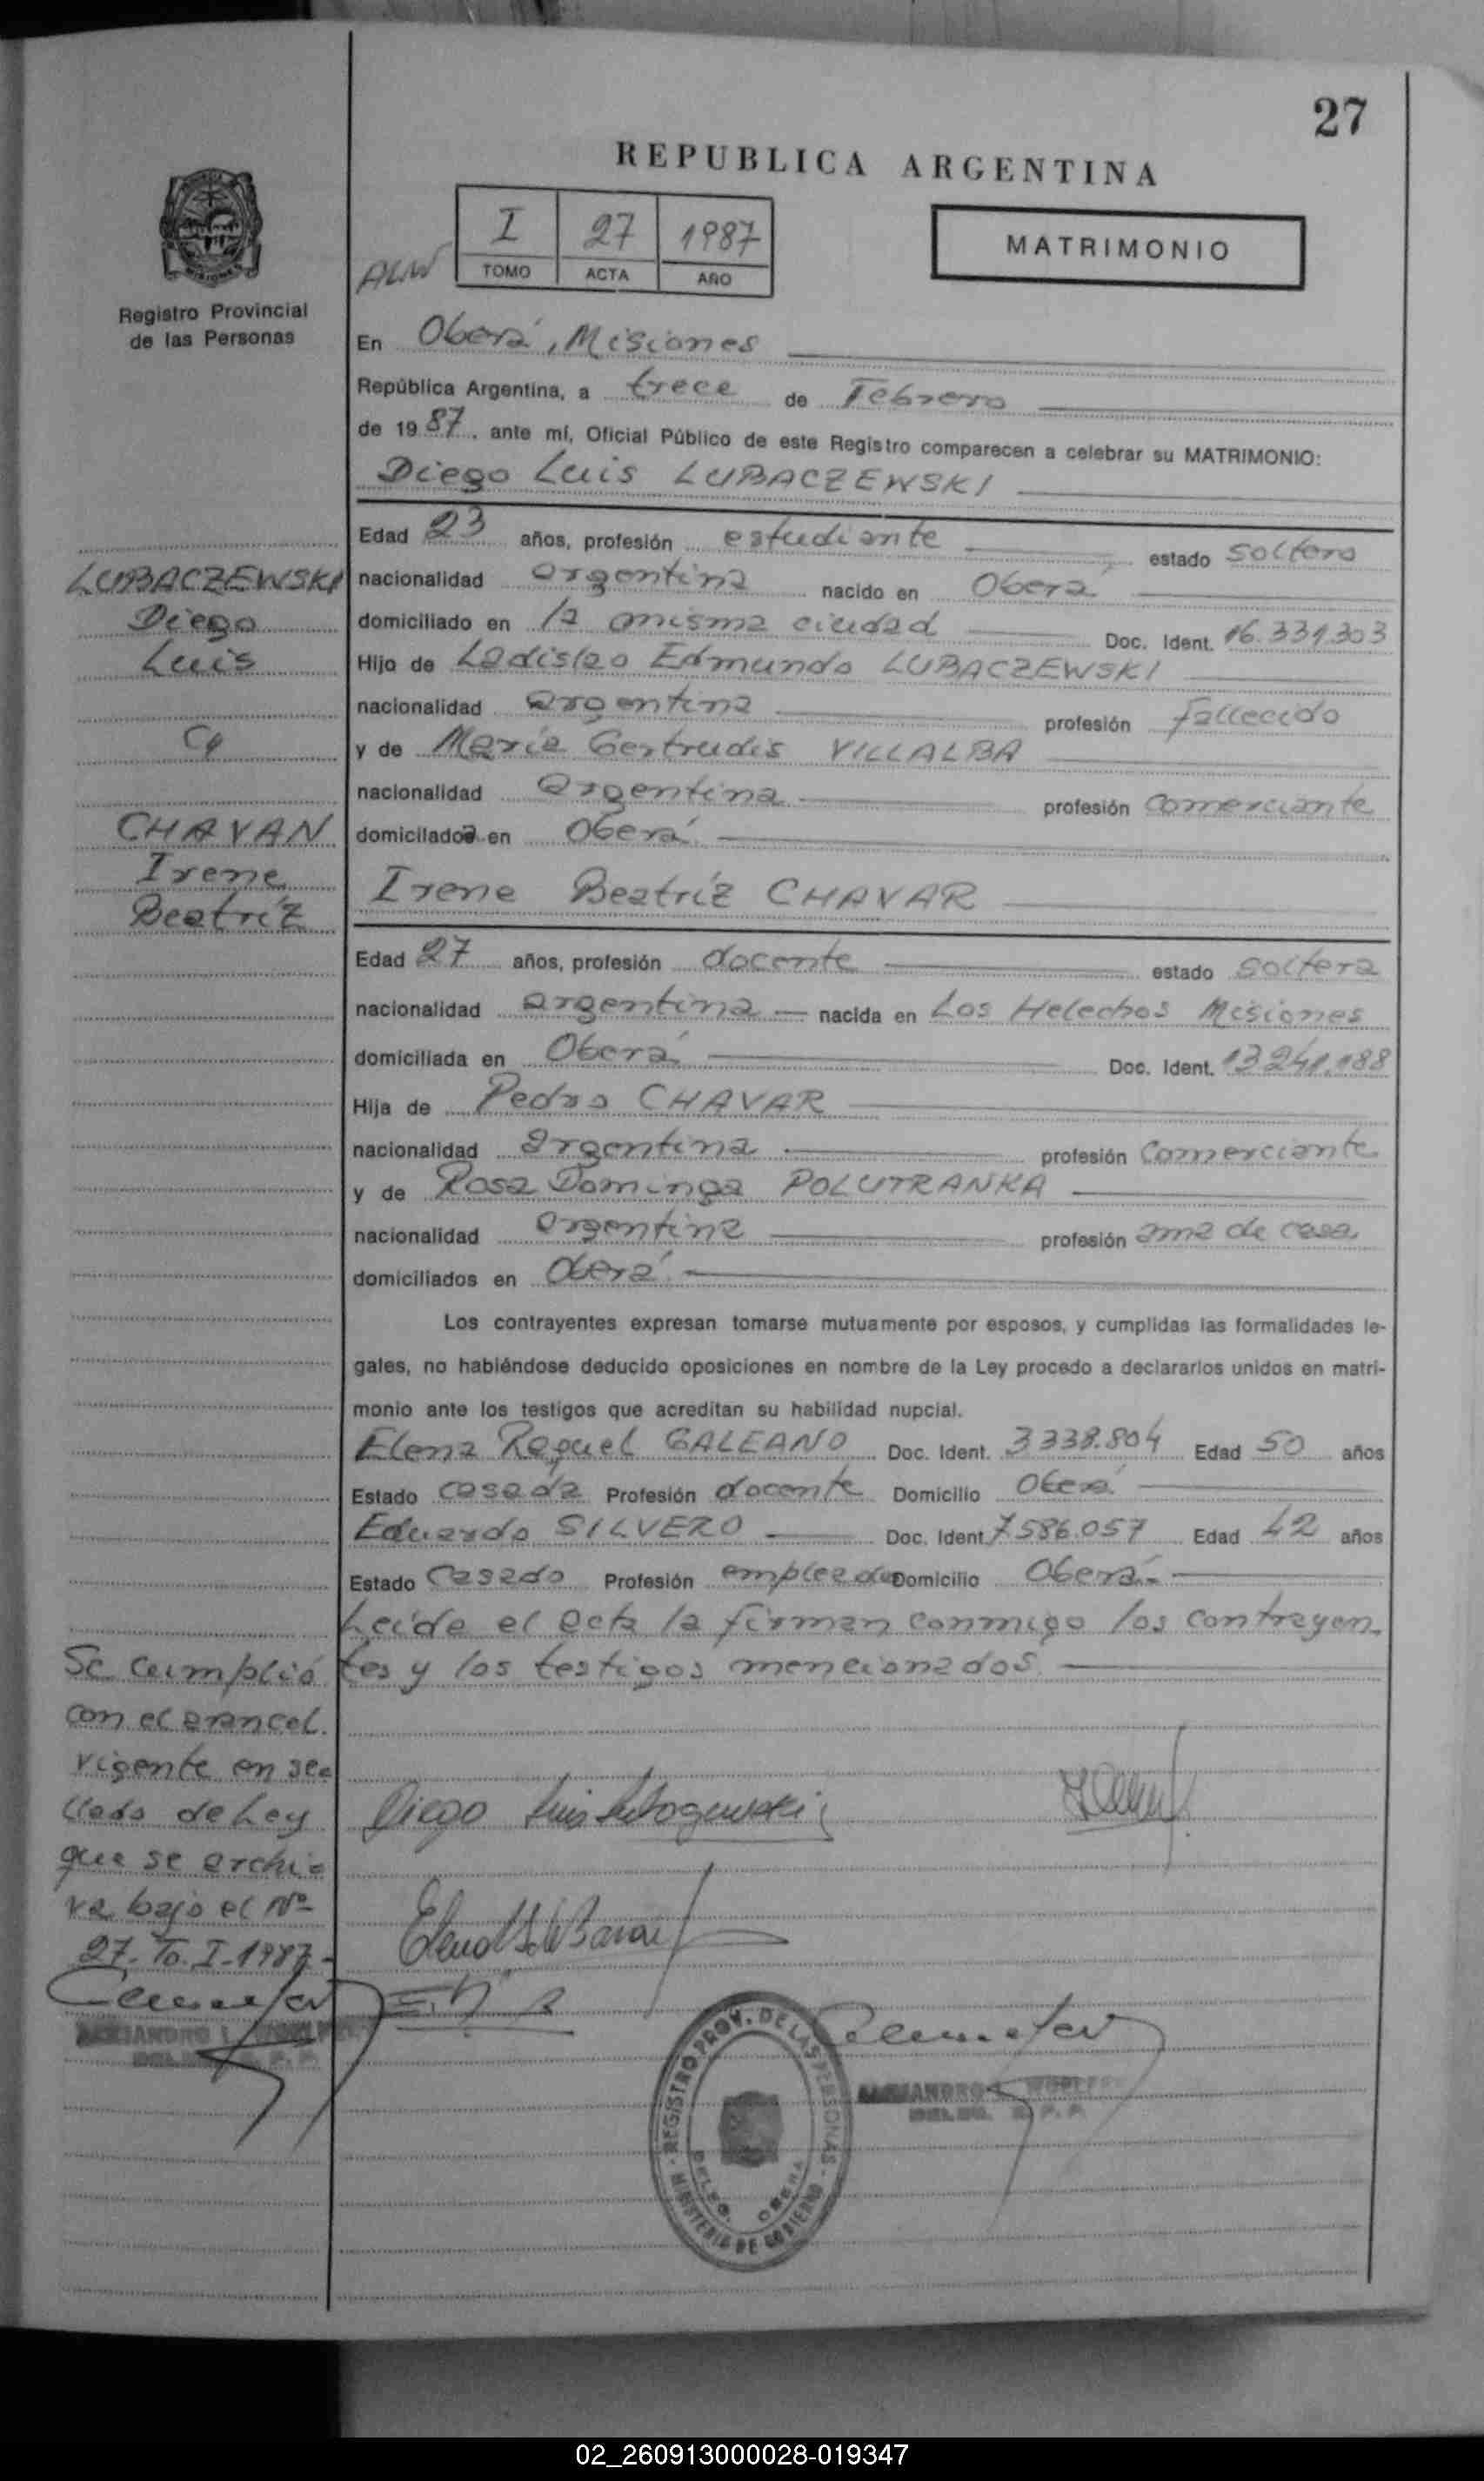 27
REPUBLICA ARGENTINA
I 27 1987
TOMO ACTA AÑO
MATRIMONIO
Registro Provincial
de las Personas
En Oberá, Misiones
República Argentina, a trece de Febrero
de 19 87, ante mí, Oficial Público de este Registro comparecen a celebrar su MATRIMONIO:
Diego Luis LUBACZEWSKI
Edad 23 años, profesión estudiante estado soltero
LUBACZEWSKI
Diego
Luis
nacionalidad argentina nacido en Oberá
domiciliado en la misma ciudad Doc. Ident. 16.331.303
Hijo de Ladislao Edmundo LUBACZEWSKI
nacionalidad argentina profesión fallecido
y de María Gertrudis VILLALBA
nacionalidad argentina profesión comerciante
domicilada en Oberá
CHAVAN
Irene
Beatríz
Irene Beatríz CHAVAR
Edad 27 años, profesión docente estado soltera
nacionalidad argentina nacida en Los Helechos Misiones
domiciliada en Oberá Doc. Ident. 13.241.188
Hija de Pedro CHAVAR
nacionalidad argentina profesión comerciante
y de Rosa Dominga POLUTRANKA
nacionalidad argentina profesión ama de casa
domiciliados en Oberá
Los contrayentes expresan tomarse mutuamente por esposos, y cumplidas las formalidades le-
gales, no habiéndose deducido oposiciones en nombre de la Ley procedo a declararlos unidos en matri-
monio ante los testigos que acreditan su habilidad nupcial.
Elena Raquel GALEANO Doc. Ident. 3338.804 Edad 50 años
Estado casada Profesión docente Domicilio Oberá
Eduardo SILVERO Doc. Ident. 7586.057 Edad 42 años
Estado Casado Profesión empleado Domicilio Oberá.-
Leída el acta la firman conmigo los contrayen-
tes y los testigos mencionados.
Se cumplió
con el arancel
vigente en se-
llado de Ley
que se archi-
va bajo el Nº
27. To. I-1987-
Diego Luis Lubaczewski
ALEJANDRO
REGISTRO PROV. DE LAS PERSONAS
MINISTERIO DE GOBIERNO
DELEG. OBERA
ALEJANDRO
02_260913000028-019347